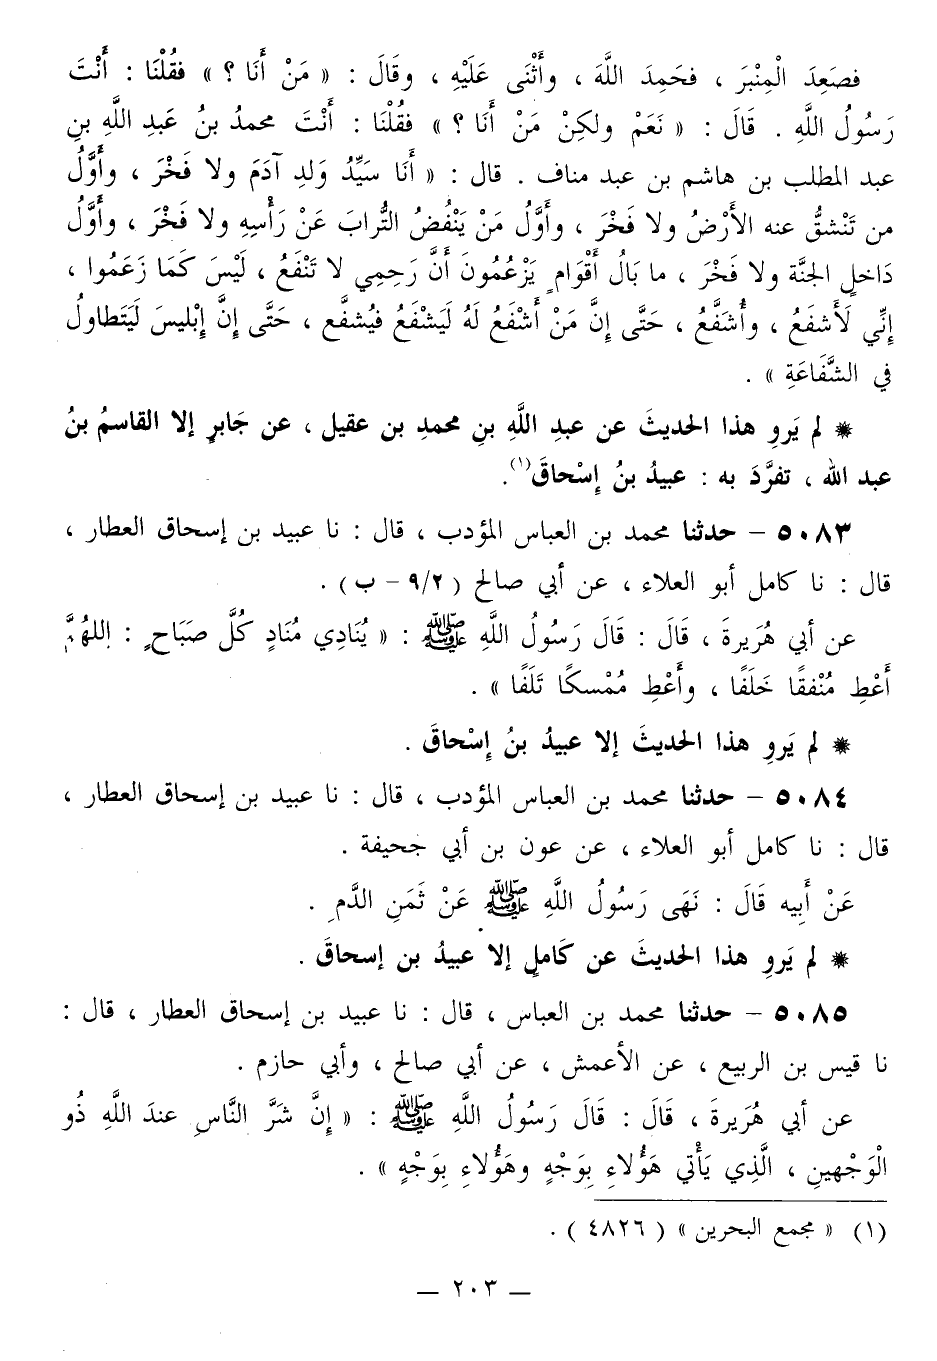 فصَعِدَ الْمِنْبَرَ ، فحَمِدَ اللَّهَ ، وأَثْنَى عَلَيْهِ ، وقَالَ : « مَنْ أَنَا ؟ » فقُلْنَا : أَنْتَ
رَسُولُ اللَّهِ . قَالَ : « نَعَمْ ولكِنْ مَنْ أَنَا ؟ » فقُلْنَا : أَنْتَ محمدُ بنُ عَبدِ اللَّهِ بنِ
عبد المطلب بن هاشم بن عبد مناف . قال : « أَنَا سَيِّدُ وَلدِ آدَمَ ولا فَخْرَ ، وأَوَّلُ
من تَنْشقُّ عنه الأَرْضُ ولا فَخْرَ ، وأَوَّلُ مَنْ يَنْفُضُ التُّرابَ عَنْ رَأْسِهِ ولا فَخْرَ ، وأَوَّلُ
دَاخلٍ الجنَّة ولا فَخْرَ ، ما بَالُ أَقْوَامٍ يَزْعُمُونَ أَنَّ رَحِمِي لا تَنْفَعُ ، لَيْسَ كَمَا زَعَمُوا ،
إِنِّي لَأَشفَعُ ، وأُشَفَّعُ ، حَتَّى إِنَّ مَنْ أَشْفَعُ لَهُ لَيَشْفَعُ فيُشفَّع ، حَتَّى إِنَّ إِبْليسَ لَيَتَطاولُ
في الشَّفَاعَةِ » .
* لم يَروِ هذا الحديثَ عن عبدِ اللَّهِ بنِ محمدِ بن عقيل ، عن جَابرٍ إلا القاسمُ بنُ
عبد الله ، تفرَّدَ به : عبيدُ بنُ إِسْحاقَ(١).
٥٠٨٣ – حدثنا محمد بن العباس المؤدب ، قال : نا عبيد بن إسحاق العطار ،
قال : نا كامل أبو العلاء ، عن أبي صالح ( ٩/٢ – ب ) .
عن أبي هُرَيرةَ ، قَالَ : قَالَ رَسُولُ اللَّهِ ﷺ : « يُنَادِي مُنَادٍ كُلَّ صَبَاحٍ : اللهُمَّ
أَعْطِ مُنْفقًا خَلَفًا ، وأَعْطِ مُمْسكًا تَلَفًا » .
* لم يَروِ هذا الحديثَ إلا عبيدُ بنُ إِسْحاقَ .
٥٠٨٤ – حدثنا محمد بن العباس المؤدب ، قال : نا عبيد بن إسحاق العطار ،
قال : نا كامل أبو العلاء ، عن عون بن أبي جحيفة .
عَنْ أَبِيه قَالَ : نَهَى رَسُولُ اللَّهِ ﷺ عَنْ ثَمَنِ الدَّمِ .
* لم يَروِ هذا الحديثَ عن كَاملٍ إلا عبيدُ بن إسحاقَ .
٥٠٨٥ – حدثنا محمد بن العباس ، قال : نا عبيد بن إسحاق العطار ، قال :
نا قيس بن الربيع ، عن الأعمش ، عن أبي صالح ، وأبي حازم .
عن أبي هُرَيرةَ ، قَالَ : قَالَ رَسُولُ اللَّهِ ﷺ : « إِنَّ شَرَّ النَّاسِ عندَ اللَّهِ ذُو
الْوَجْهينِ ، الَّذِي يَأْتي هَؤُلاءِ بِوَجْهٍ وهَؤُلاءِ بِوَجْهٍ » .
(١) « مجمع البحرين » ( ٤٨٢٦ ) .
— ٢٠٣ —